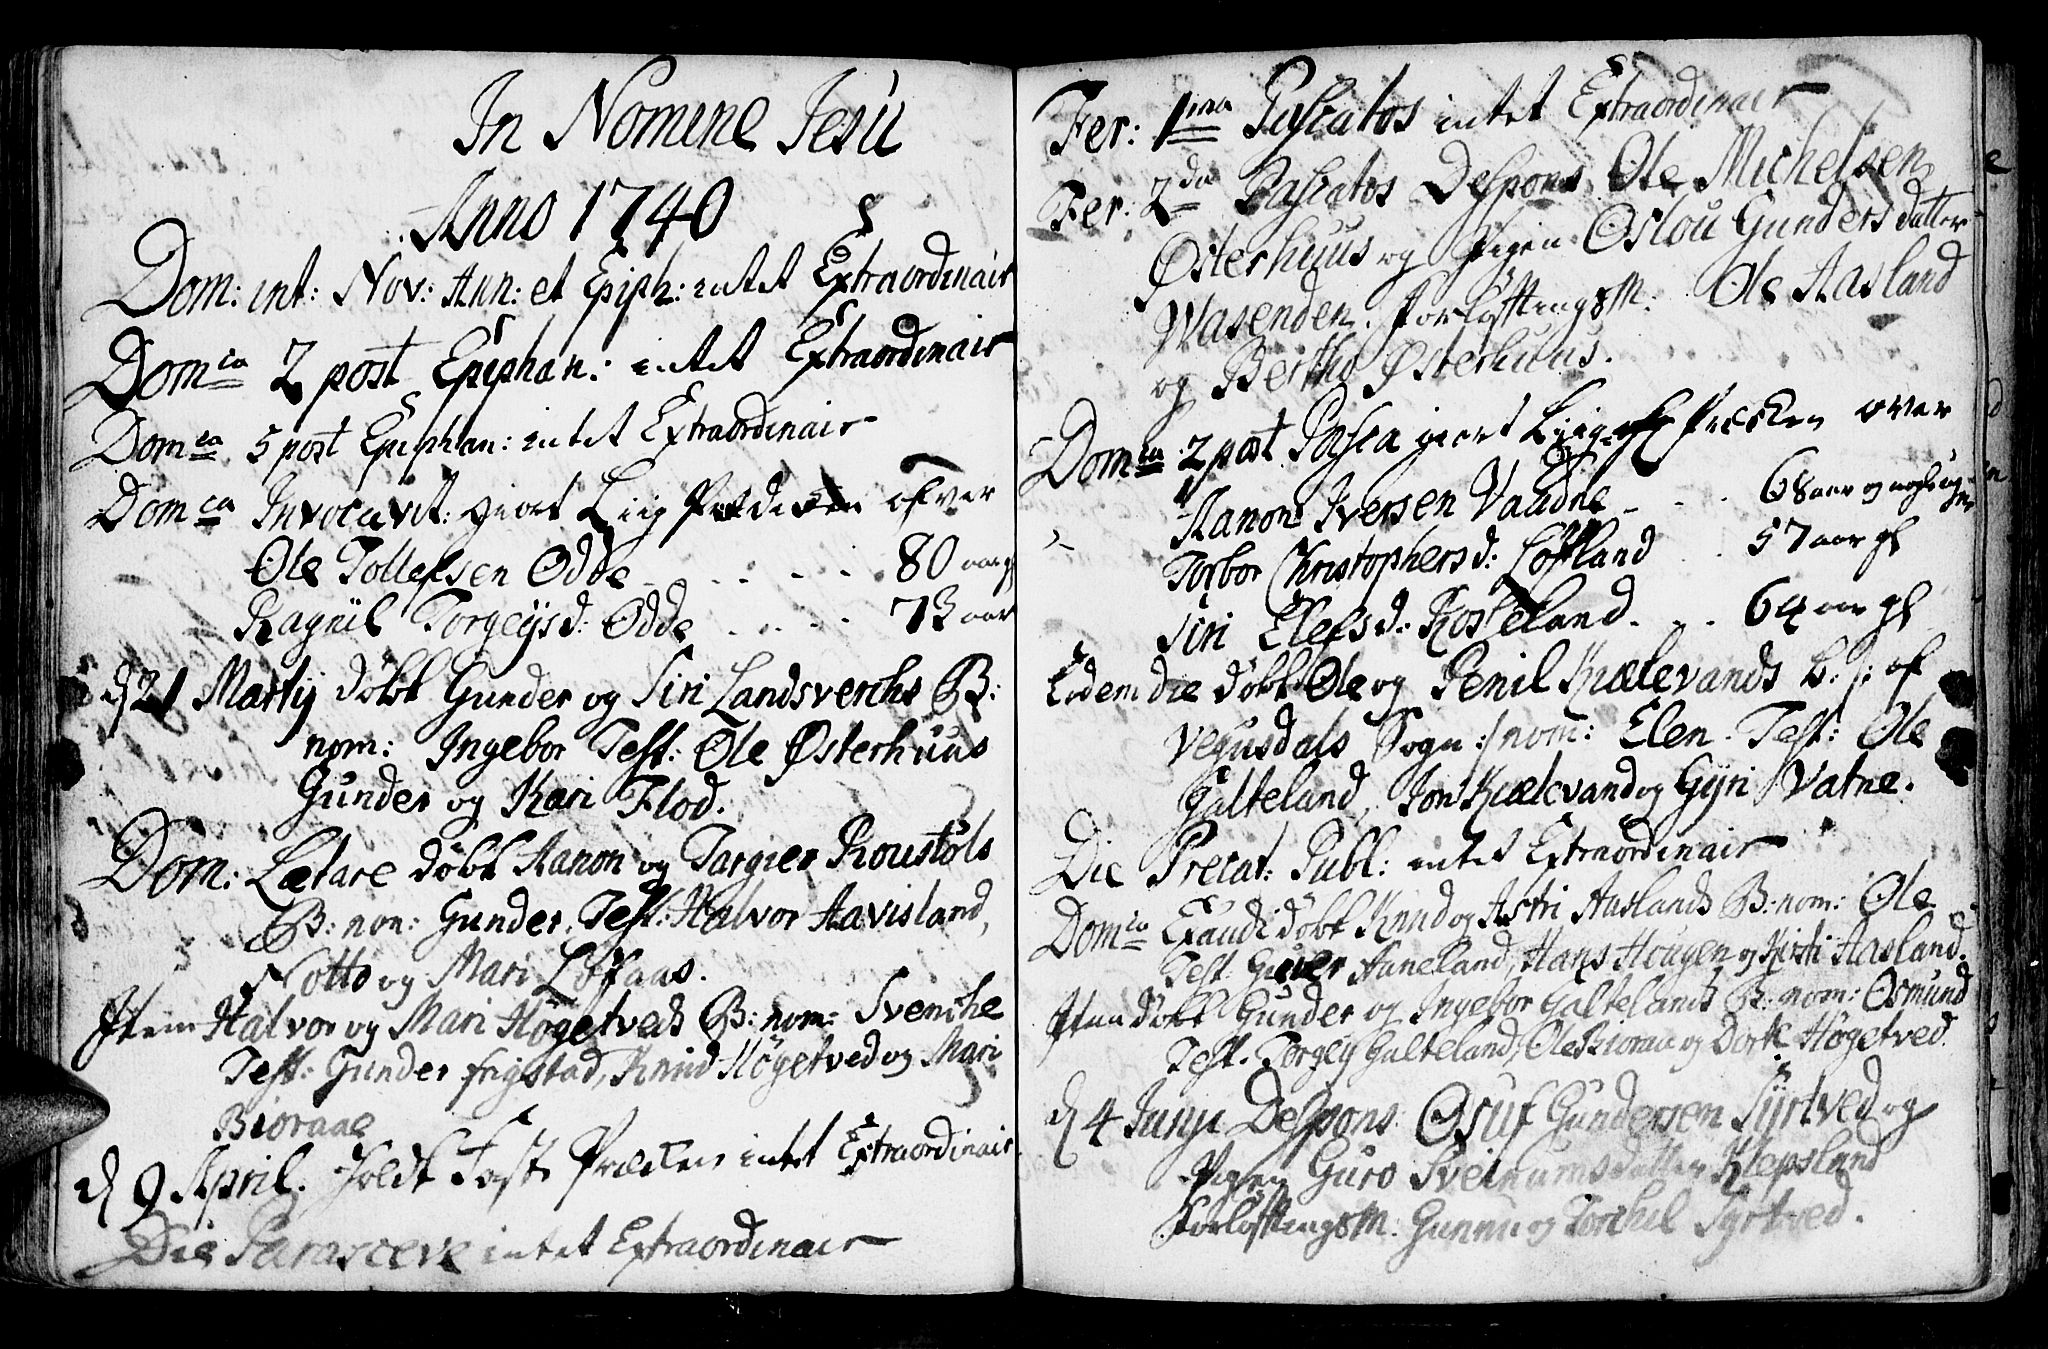 In Nomine Jesu
Anno 1740
Dom: int: Nov: Ann: et Epiph: intet Extraordinair
Domca 2 post Epiphan: intet Extraordinair
Domca 5 post Epiphan: intet Extraordinair
Domca Invocavit: giort Liig Prædicken ofver
Ole Tollefsen Odde - - - - 80 aar gl
Ragnil Torgeÿsd: Odde - - - - 73 aar
d 21 Martij döbt Gunder og Siri Landsverchs B:
nom: Ingebor Test: Ole Østerhuus
Gunder og Kari Flod.
Dom: Lætare döbt Aanon og Targier Roustöls
B: nom: Gunder. Test: Halvor Aavisland,
Notto og Mari Löfaas.
Item Halvor og Mari Högetveds B: nom: Svenche
Test: Gunder frigstad, Knud Högetved og Mari
Bioraae
d 9 April. Holdt Faste Prædicken intet Extraordinair
Die Parasceve intet Extraordinair
Fer: 1ma Paschatos intet Extraordinair
Fer: 2da Paschatos Despons. Ole Michelsen
Østerhuus og Pigen Oslou Gunders datter
Wasenden. Forloftings M: Ole Aasland
og Berthe Østerhuus.
Domca 2 post Pascha giort Liig Præcken over
Aanon Iversen Vaadne - - - 68 aar og nogle uger
Torbor Christophersd: Löfland - 57 aar gl
Siri Elefsd: Rosseland - - - 64 aar gl
Eodem die döbt Ole og Penil Kiætevands b. /: af
Vegusdals Sogn :/ nom: Elen. Test: Ole
Galteland, Jon Kiætevand og Gÿri Vatne.
Die Precat: Publ: intet Extraordinair
Domca Exaudi döbt Knud og Astri Aaslands B: nom: Ole
Test. Gunder Aaneland, Hans Hougen og Kirsti Aasland.
Item döbt Gunder og Ingebor Galtelands B: nom: Osmund
Test. Torgeÿ Galteland, Ole Bioraa og Dorte Högetved
d 4 Junji Despons: Osuf Gundersen Sÿrtved og
Pigen Guro Sveinumsdatter Klepsland
Forloftings M: Gunnu og Torchel Syrtved.